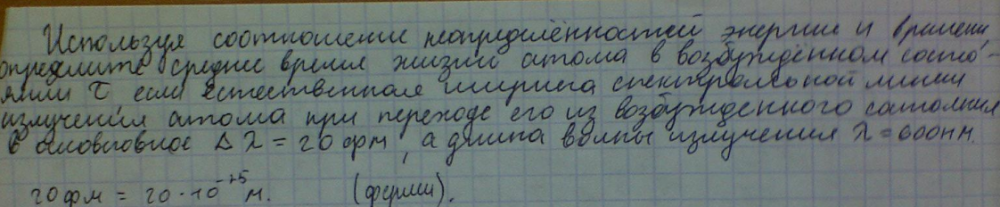 Используя соотношение неопределённостей энергии и времени,
определите среднее время жизни атома в возбуждённом состо-
янии τ, если естественная ширина спектральной линии
излучения атома при переходе его из возбужденного состояния
в основовное Δλ = 20 фм, а длина волны излучения λ = 600 нм.
20 фм = 20 · 10⁻¹⁵ м. (ферми).